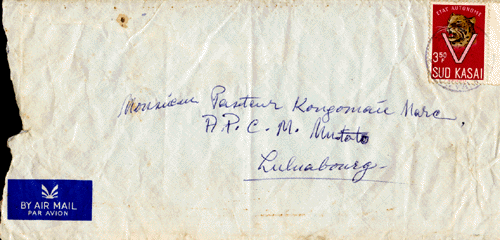 ETAT AUTONOME
3,50 F
SUD KASAI
Monsieur Pasteur Kongomaïi Marc,
A.P.C.M. Mutoto
Luluabourg
BY AIR MAIL
PAR AVION